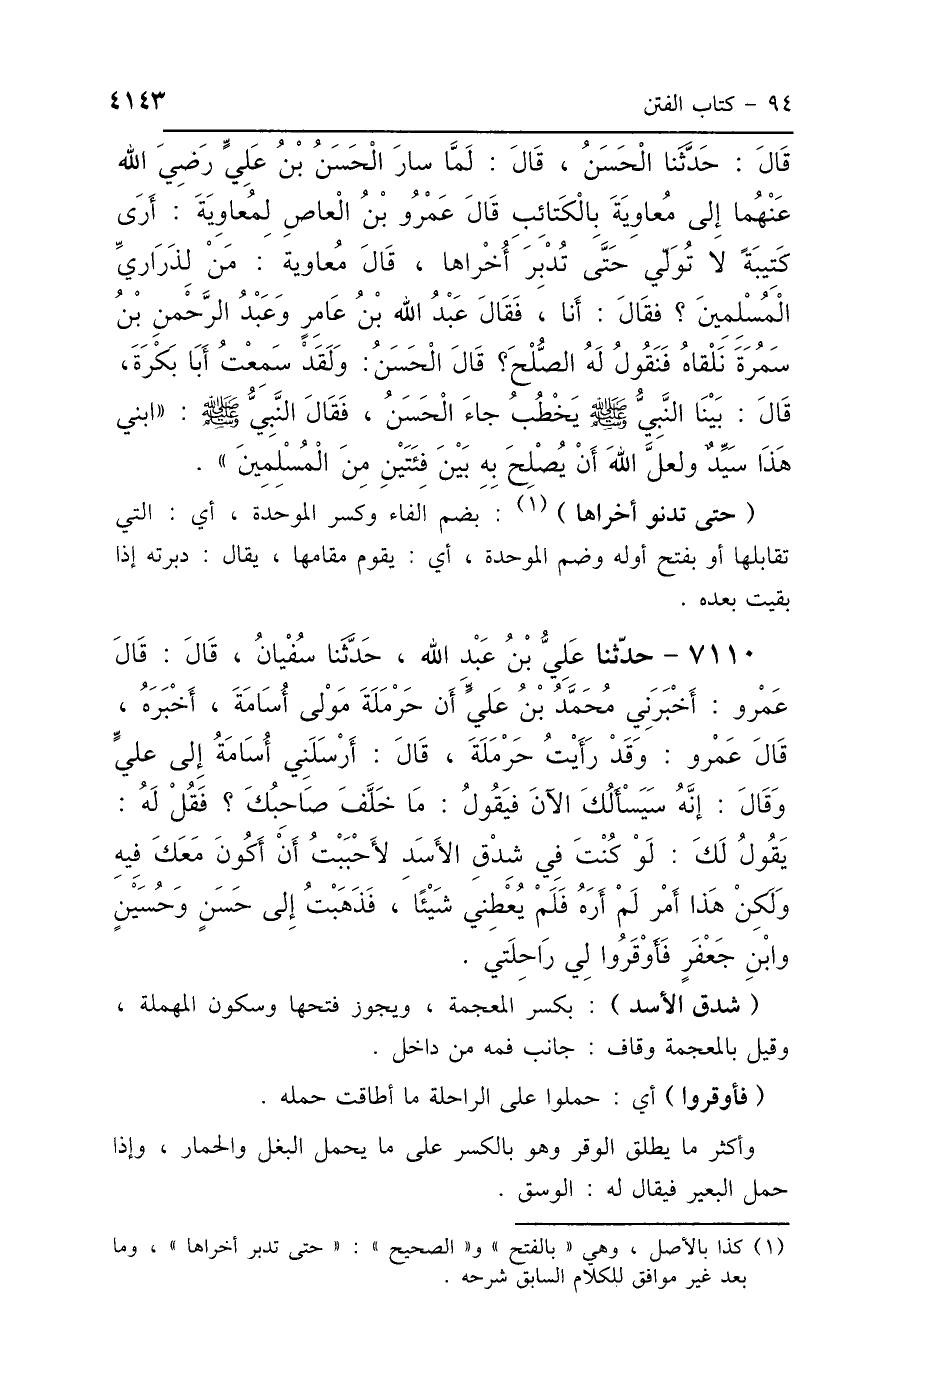 ٩٤ - كتاب الفتن ٤١٤٣
قَالَ : حَدَّثَنا الْحَسَنُ ، قَالَ : لَمَّا سارَ الْحَسَنُ بْنُ عَلِيٍّ رَضِيَ الله
عَنْهُما إلى مُعاوِيَةَ بِالْكَتائِبِ قَالَ عَمْرُو بْنُ الْعاصِ لِمُعاوِيَةَ : أَرَى
كَتِيبَةً لا تُوَلّي حَتَّى تُدْبِرَ أُخْراها ، قَالَ مُعاوية : مَنْ لِذَرَارِيِّ
الْمُسْلِمِينَ ؟ فقَالَ : أنا ، فَقَالَ عَبْدُ الله بْنُ عَامِرٍ وَعَبْدُ الرَّحْمنِ بْنُ
سَمُرَةَ نَلْقاهُ فَنَقُولُ لَهُ الصُّلْحَ؟ قَالَ الْحَسَنُ: وَلَقَدْ سَمِعْتُ أَبَا بَكْرَةَ،
قَالَ : بَيْنَا النَّبِيُّ ﷺ يَخْطُبُ جاءَ الْحَسَنُ ، فَقَالَ النَّبِيُّ ﷺ : «ابني
هَذَا سَيِّدٌ ولعلَّ اللهَ أَنْ يُصْلِحَ بِهِ بَيْنَ فِئَتَيْنِ مِنَ الْمُسْلِمِينَ » .
( حتى تدنو أخراها ) (١) : بضم الفاء وكسر الموحدة ، أي : التي
تقابلها أو بفتح أوله وضم الموحدة ، أي : يقوم مقامها ، يقال : دبرته إذا
بقيت بعده .
٧١١٠ - حدّثنا عَلِيُّ بْنُ عَبْدِ الله ، حَدَّثَنا سُفْيانُ ، قَالَ : قَالَ
عَمْرو : أَخْبَرَنِي مُحَمَّدُ بْنُ عَلِيٍّ أن حَرْمَلَةَ مَوْلى أُسَامَةَ ، أَخْبَرَهُ ،
قَالَ عَمْرو : وَقَدْ رَأَيْتُ حَرْمَلَةَ ، قَالَ : أَرْسَلَنِي أُسَامَةُ إلى عليٍّ
وَقَالَ : إنَّهُ سَيَسْأَلُكَ الآنَ فَيَقُولُ : مَا خَلَّفَ صَاحِبُكَ ؟ فَقُلْ لَهُ :
يَقُولُ لَكَ : لَوْ كُنْتَ فِي شِدْقِ الأسَدِ لأَحْبَبْتُ أَنْ أَكُونَ مَعَكَ فِيهِ
وَلَكِنْ هَذا أَمْر لَمْ أَرَهُ فَلَمْ يُعْطِني شَيْئًا ، فَذَهَبْتُ إلى حَسَنٍ وَحُسَيْنٍ
وابْنِ جَعْفَرٍ فَأَوْقَرُوا لِي رَاحِلَتي .
( شدق الأسد ) : بكسر المعجمة ، ويجوز فتحها وسكون المهملة ،
وقيل بالمعجمة وقاف : جانب فمه من داخل .
( فأوقروا ) أي : حملوا على الراحلة ما أطاقت حمله .
وأكثر ما يطلق الوقر وهو بالكسر على ما يحمل البغل والحمار ، وإذا
حمل البعير فيقال له : الوسق .
(١) كذا بالأصل ، وهي « بالفتح » و« الصحيح » : « حتى تدبر أخراها » ، وما
بعد غير موافق للكلام السابق شرحه .